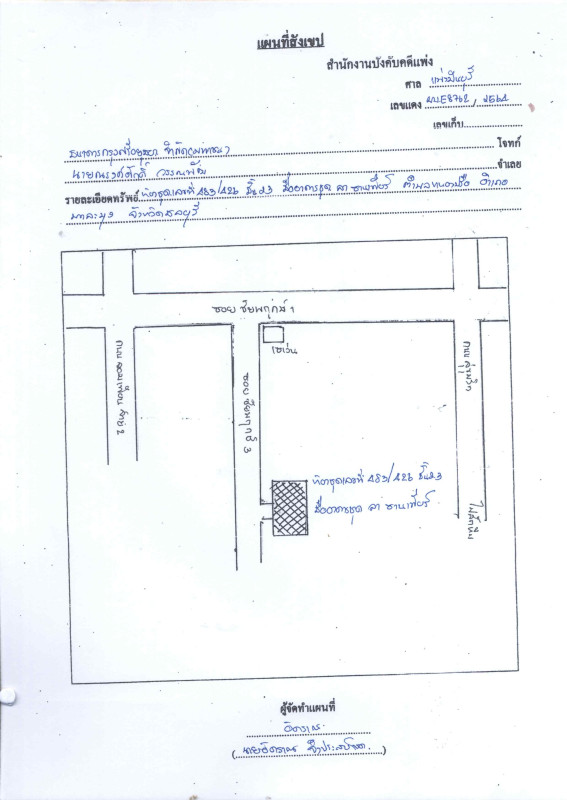 แผนที่สังเขป
สำนักงานบังคับคดีแพ่ง
ศาล แพ่งมีนบุรี
เลขแดง ผบE8762/2564
เลขเก็บ
ธนาคารกรุงศรีอยุธยา จำกัด(มหาชน) โจทก์
นายณรงค์ศักดิ์ วรรณพัฒ จำเลย
รายละเอียดทรัพย์ ห้องชุดเลขที่ 483/426 ชั้น23 ชื่ออาคารชุด ลา ซานเทียร์ ตำบลหนองปรือ อำเภอ
บางละมุง จังหวัดชลบุรี
ซอย ชัยพฤกษ์ 1
เซเว่น
ถนน จอมเทียน สาย 2
ซอย ชัยพฤกษ์ 3
ถนน สุขุมวิท
ห้องชุดเลขที่ 483/426 ชั้น23
ชื่ออาคารชุด ลา ซานเทียร์
ไปสัตหีบ
ผู้จัดทำแผนที่